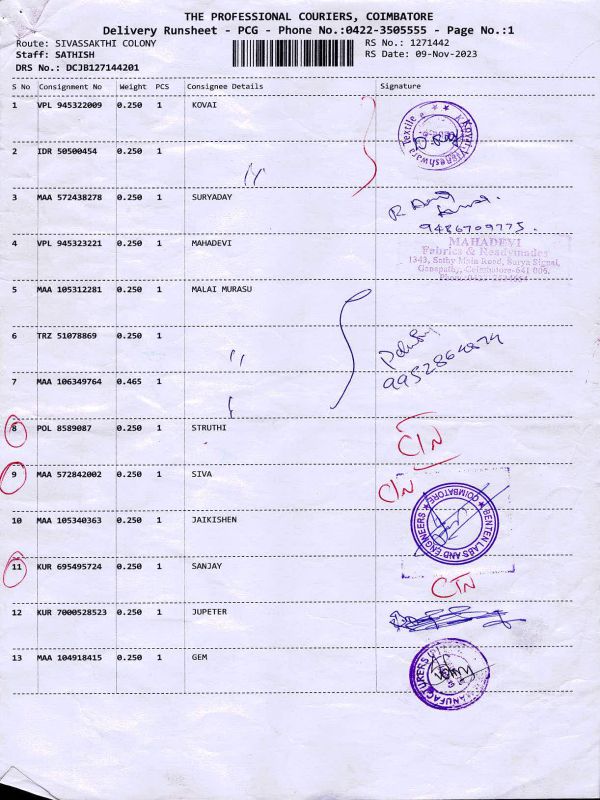 THE PROFESSIONAL COURIERS, COIMBATORE
Delivery Runsheet - PCG - Phone No.:0422-3505555 - Page No.:1
Route: SIVASSAKTHI COLONY
RS No.: 1271442
Staff: SATHISH
RS Date: 09-Nov-2023
DRS No.: DCJB127144201
S No Consignment No Weight PCS Consignee Details Signature
1 VPL 945322009 0.250 1 KOVAI
Textile
2 IDR 50500454 0.250 1
3 MAA 572438278 0.250 1 SURYADAY
9486709775.
4 VPL 945323221 0.250 1 MAHADEVI
MAHADEVI
Fabrics & Readymades
1343, Sathy Main Road, Surya Signal,
Ganapathy, Coimbatore-641 006.
5 MAA 105312281 0.250 1 MALAI MURASU
6 TRZ 51078869 0.250 1
7 MAA 106349764 0.465 1
8 POL 8589087 0.250 1 STRUTHI
CIN
9 MAA 572842002 0.250 1 SIVA
CIN
10 MAA 105340363 0.250 1 JAIKISHEN
BENTEN LABS AND ENGINEERS
COIMBATORE
11 KUR 695495724 0.250 1 SANJAY
CIN
12 KUR 7000528523 0.250 1 JUPETER
13 MAA 104918415 0.250 1 GEM